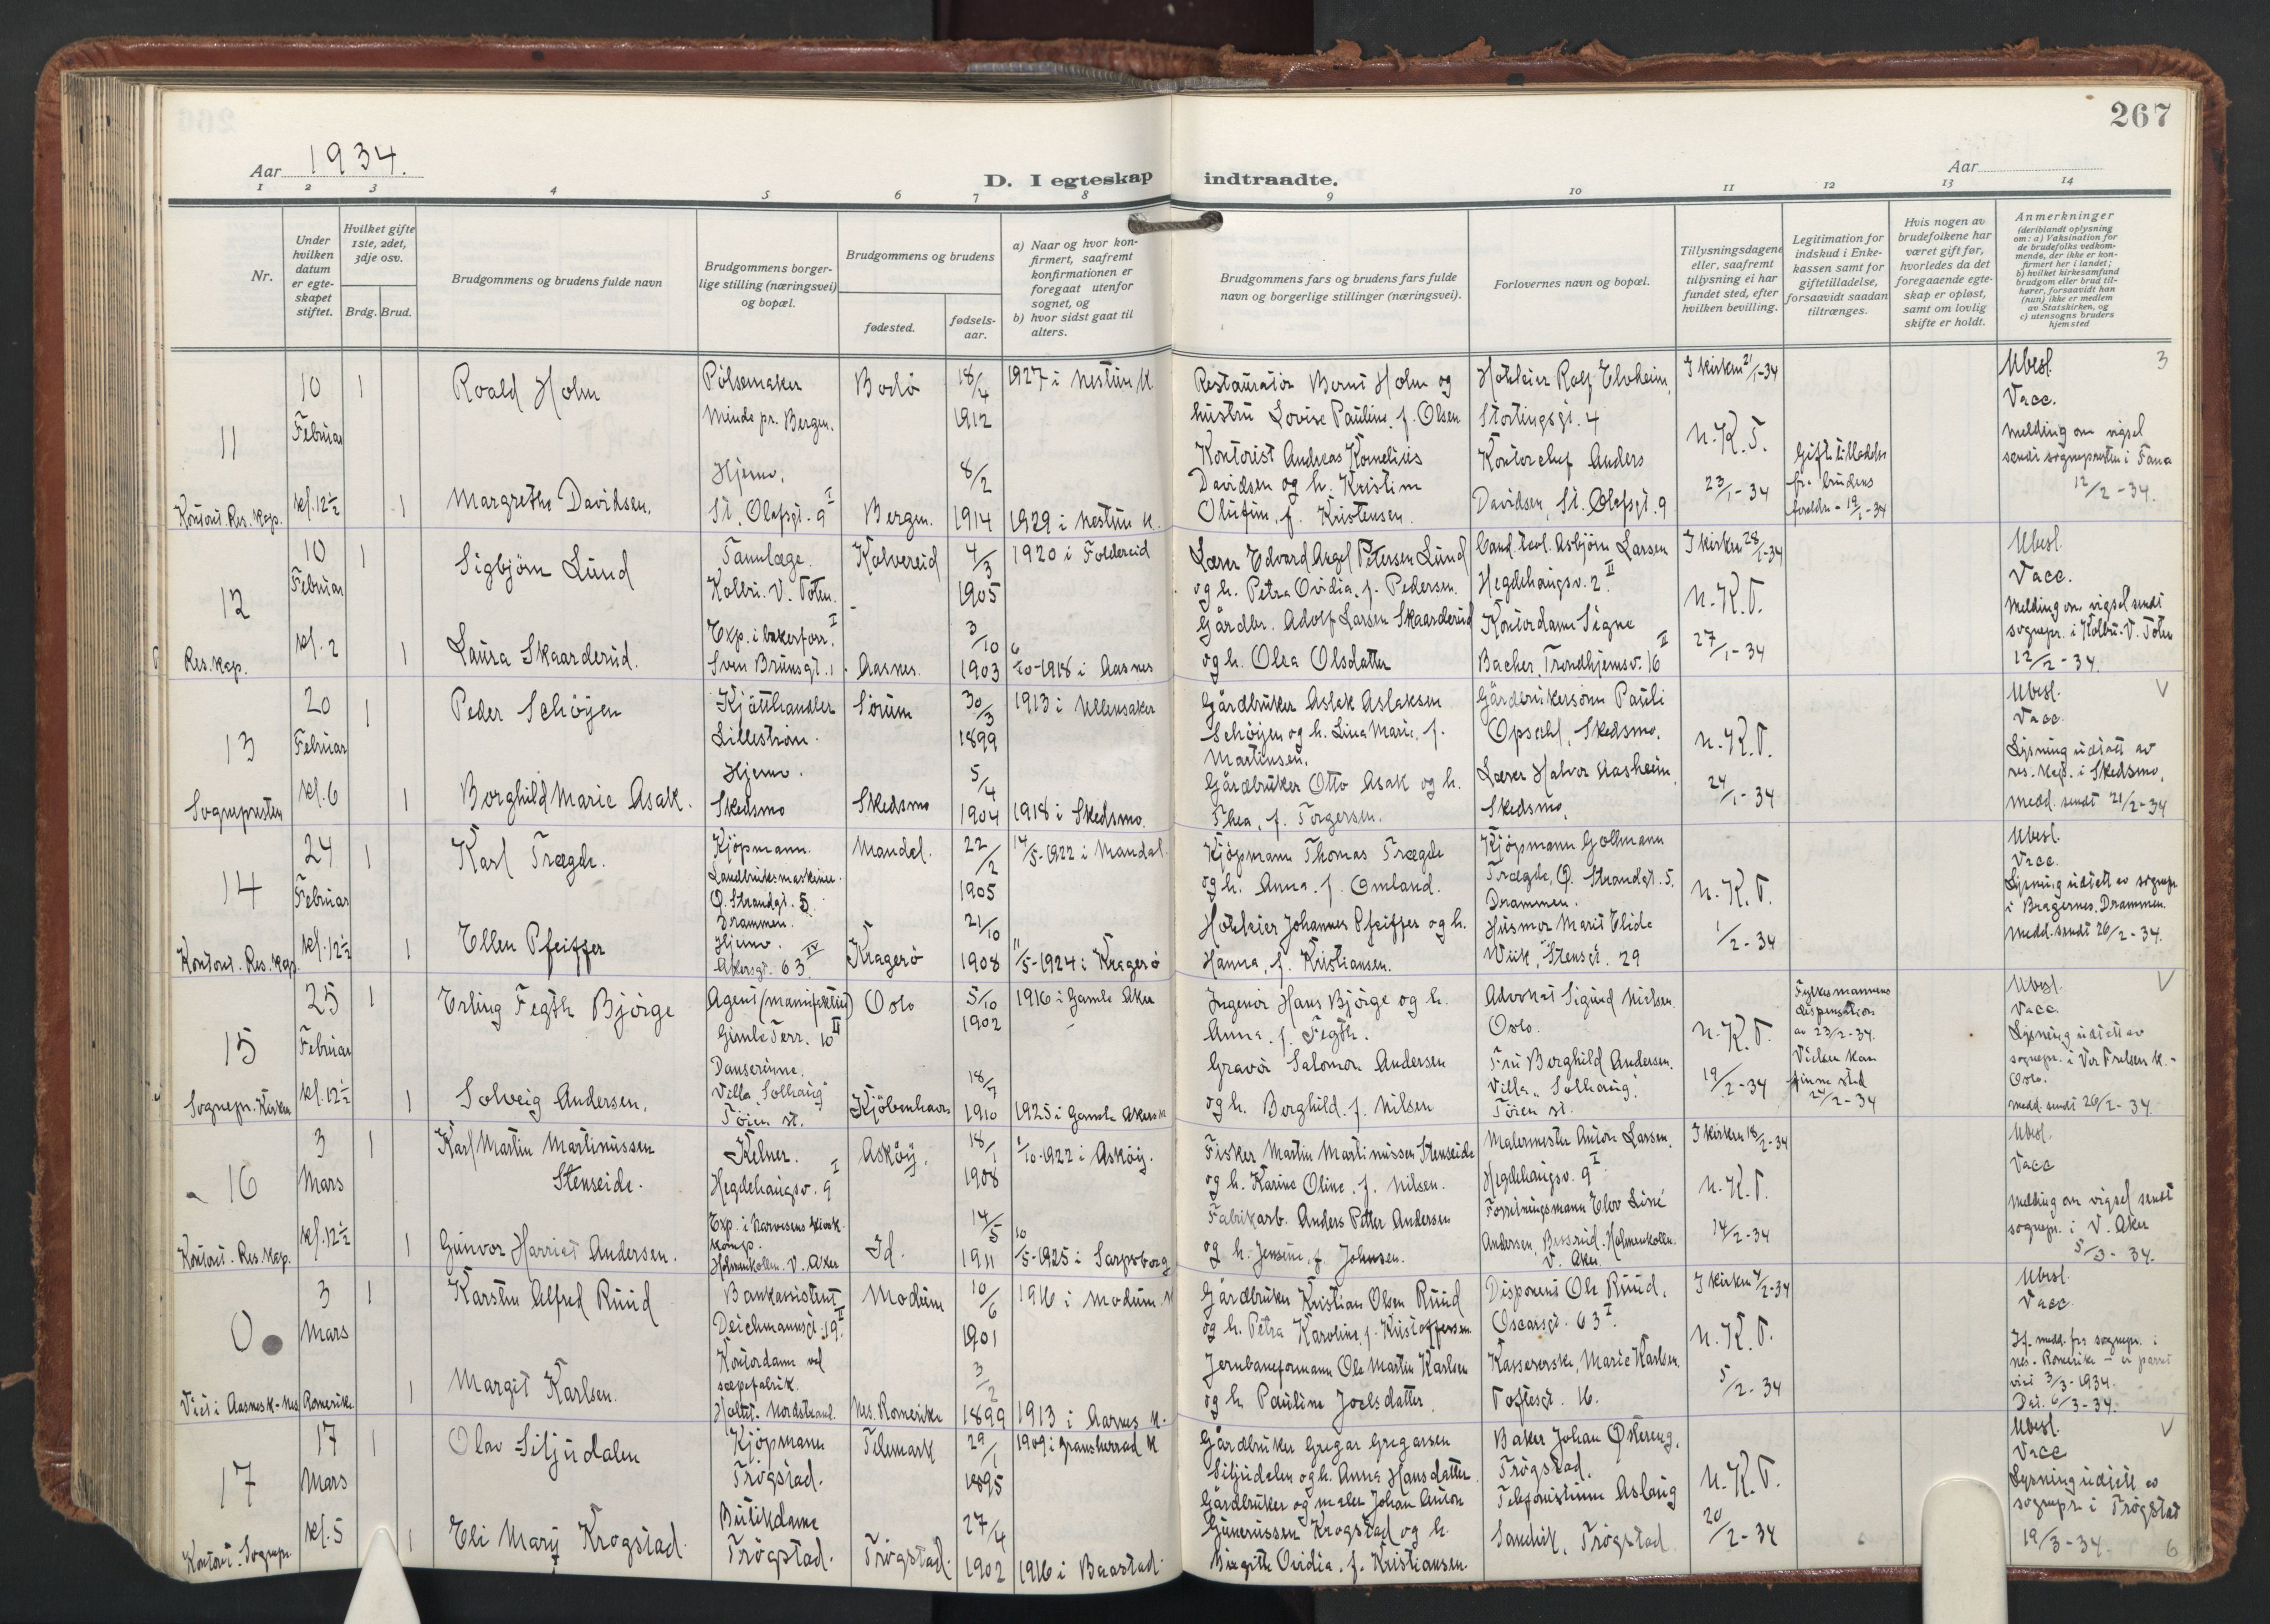 267
Aar 1934.
Aar
D. I egteskap indtraadte.
1 2 3 4 5 6 7 8 9 10 11 12 13 14
Nr.
Under hvilken datum er egte-skapet stiftet.
Hvilket gifte 1ste, 2det, 3dje osv.
Brdg. Brud.
Brudgommens og brudens fulde navn
Brudgommens borger-lige stilling (næringsvei) og bopæl.
Brudgommens og brudens
fødested.
fødsels-aar.
a) Naar og hvor kon-firmert, saafremt konfirmationen er foregaat utenfor sognet, og
b) hvor sidst gaat til alters.
Brudgommens fars og brudens fars fulde navn og borgerlige stillinger (næringsvei).
Forlovernes navn og bopæl.
Tillysningsdagene eller, saafremt tillysning ei har fundet sted, efter hvilken bevilling.
Legitimation for indskud i Enke-kassen samt for giftetilladelse, forsaavidt saadan tiltrænges.
Hvis nogen av brudefolkene har været gift før, hvorledes da det foregaaende egte-skap er opløst, samt om lovlig skifte er holdt.
Anmerkninger (deriblandt oplysning om: a) Vaksination for de brudefolks vedkom-mende, der ikke er kon-firmert her i landet; b) hvilket kirkesamfund brudgom eller brud til-hører, forsaavidt han (hun) ikke er medlem av Statskirken, og c) utensogns bruders hjemsted
11
10 Februar kl. 12½
Kontoret. Res. kap.
1
Roald Holm
Pölsemaker
Minde pr. Bergen.
Bodö
18/4 1912
1927 i Nestun K.
Restauratör Bernt Holm og
hustru Lovise Pauline, f. Olsen
Hoteleier Rolf Elvheim,
Stortingsgt. 4
I kirken 21/1-34
N.K.T.
23/1-34
1
Margrethe Davidsen.
Hjemv.
St. Olafsgt. 9 I
Bergen.
8/2 1914
1929 i Nestun K.
Kontorist Andreas Kornelius
Davidsen og h. Kristine
Olufine, f. Kristensen.
Kontorchef Anders
Davidsen, St. Olafsgt. 9
Gift. tilladelse
fra brudens
foreldre - 19/1-34
Ubesl. 3
Vacc.
Melding om vigsel
sendt sognepresten i Fana
12/2-34.
12
10 Februar kl. 2
Res. kap.
1
Sigbjörn Lund
Tannlæge.
Kolbu. V. Toten.
Kolvereid
4/3 1905
1920 i Foldereid
Lærer Edvard Angel Petersen Lund
og h. Petra Ovidia, f. Pedersen.
Cand. teol. Asbjörn Larsen
Hegdehaugsv. 2 II
I kirken 28/1-34
N.K.T.
27/1-34
1
Laura Skaarderud.
Exp. i bakerforr.
Sven Brunsgt. 1 I
Aasnes.
3/10 1903
6/10-1918 i Aasnes
Gårdbr. Adolf Larsen Skaarderud
og h. Olea Olsdatter
Kontordame Signe
Bacher, Trondhjemsv. 16 II
Ubesl.
Vacc.
Melding om vigsel sendt
sognepr. i Kolbu-V. Toten
12/2-34.
13
20 Februar kl. 6
Sognepresten
1
Peder Schöyen
Kjötthandler
Lilleström.
Sörum
30/3 1899
1913 i Ullensaker
Gårdbruker Aslak Aslaksen
Schöyen og h. Lina Marie, f.
Martinsen.
Gårdbrukersönn Pauli
Opsahl, Skedsmo.
N.K.T.
24/1-34
1
Borghild Marie Asak.
Hjemv.
Skedsmo
Skedsmo
5/4 1904
1918 i Skedsmo.
Gårdbruker Otto Asak og h.
Thea, f. Torgersen.
Lærer Halvor Aasheim,
Skedsmo.
Ubesl. V
Vacc.
Lysning utstett av
res. kap. i Skedsmo,
medd. sendt 21/2-34
14
24 Februar kl. 12½
Kontoret. Res. kap.
1
Karl Trægde.
Kjöpmann.
Landbruksmaskiner.
Ö. Strandgt. 5.
Drammen.
Mandal.
22/2 1905
14/5-1922 i Mandal.
Kjöpmann Thomas Trægde
og h. Anna. f. Omland.
Kjöpmann Gollmann
Trægde, Ö. Strandgt. 5.
Drammen.
N.K.T.
1/2-34
1
Ellen Pfeiffer
Hjemv.
Akersgt. 63 IV
Kragerö
21/10 1908
11/5-1924 i Kragerö
Hoteleier Johannes Pfeiffer og h.
Hanna, f. Kristiansen.
Husmor Marit Elide
Wiik, Stensgt. 29
Ubesl.
Vacc.
Lysning utstett av sognepr.
i Bragernes, Drammen.
Medd. sendt 26/2-34.
15
25 Februar kl. 12½
Sognepr. Kirken
1
Erling Fegth Björge
Agent (manufaktur)
Gimle Terr. 10 III
Oslo
5/10 1902
1916 i Gamle Aker
Ingeniör Hans Björge og h.
Anna, f. Fegth.
Advokat Sigurd Nielsen.
Oslo.
N.K.T.
19/2-34
Fylkesmannens
dispensation
av 23/2-34.
Vielsen kan
finne sted
24/2-34
1
Solveig Andersen.
Danserinne.
Villa "Solhaug"
Töien st.
Kjöbenhavn
18/7 1910
1925 i Gamle Akers k
Gravör Salomon Andersen
og h. Borghild. f. Nilsen
Fru Borghild Andersen.
Villa "Solhaug".
Töien st.
Ubesl. V
Vacc.
Lysning utstett av
sognepr. i Vor Frelsers k.-
Oslo.
Medd. sendt 26/2-34.
16
3 Mars kl. 12½
Kontoret. Res. kap.
1
Karl Martin Martinussen
Stenseide.
Kelner.
Hegdehaugsv. 9 I
Asköy.
18/1 1908
1/10-1922 i Asköy.
Fisker Martin Martinussen Stenseide
og h. Karine Oline. f. Nilsen.
Malermester Anton Larsen.
Hegdehaugsv. 9 I
I kirken 18/2-34
N.K.T.
14/2-34
1
Gunvor Harriet Andersen.
Exp. i Narvesens kiosk-
komp.
Holmenkollen. V. Aker
Id.
14/5 1911
10/5-1925 i Sarpsborg
Fabrikarb. Anders Petter Andersen
og h. Jensine, f. Johnsen.
Forsikringsmann Elov Liné
Andersen, Besserud. Holmenkollen.
V. Aker.
Ubesl.
Vacc
Melding om vigsel sendt
sognepr. i V. Aker
5/3-34.
0.
3 Mars
Viet i Aasnes k-Nes Romerike
1
Karsten Alfred Ruud
Bankassistent
Deichmannsgt. 19 II
Modum
10/6 1901
1916 i Modum K
Gårdbruker Kristian Olsen Ruud
og h. Petra Karoline, f. Kristoffersen
Disponent Ole Ruud.
Oscarsgt. 63 I.
I kirken 4/2-34
N.K.T.
5/2-34
1
Margit Karlsen.
Kontordame ved
sæpefabrik.
Holtet. Nordstrand.
Nes. Romerike
3/2 1899
1913 i Aarnes K.
Jernbaneformann Ole Martin Karlsen
og h. Pauline Joelsdatter
Kassererske, Marie Karlsen.
Toftesgt. 16.
Ubesl.
Vacc.
If. medd. fra sognepr. i
Nes. Romerike - er parret
viet 3/3-1934.
Dat. 6/3-34.
17
17 Mars kl. 5
Kontoret. Sognepr.
1
Olav Siljudalen
Kjöpmann
Trögstad.
Telemark
29/1 1895
1909 i Gransherrad K
Gårdbruker Gregar Gregarsen
Siljudalen og h. Anna Hansdatter.
Baker Johan Östereng,
Trögstad.
N.K.T.
20/2-34
1
Eli Mary Krogstad.
Butikdame
Trögstad.
Trögstad.
27/4 1902
1916 i Baastad.
Gårdbruker og maler Johan Anton
Gunerussen Krogstad og h.
Birgithe Ovidia, f. Kristiansen.
Telefonistinne Aslaug
Sandvik, Trögstad
Ubesl. V
Vacc
Lysning utstett av
sognepr. i Trögstad
19/3-34. 6